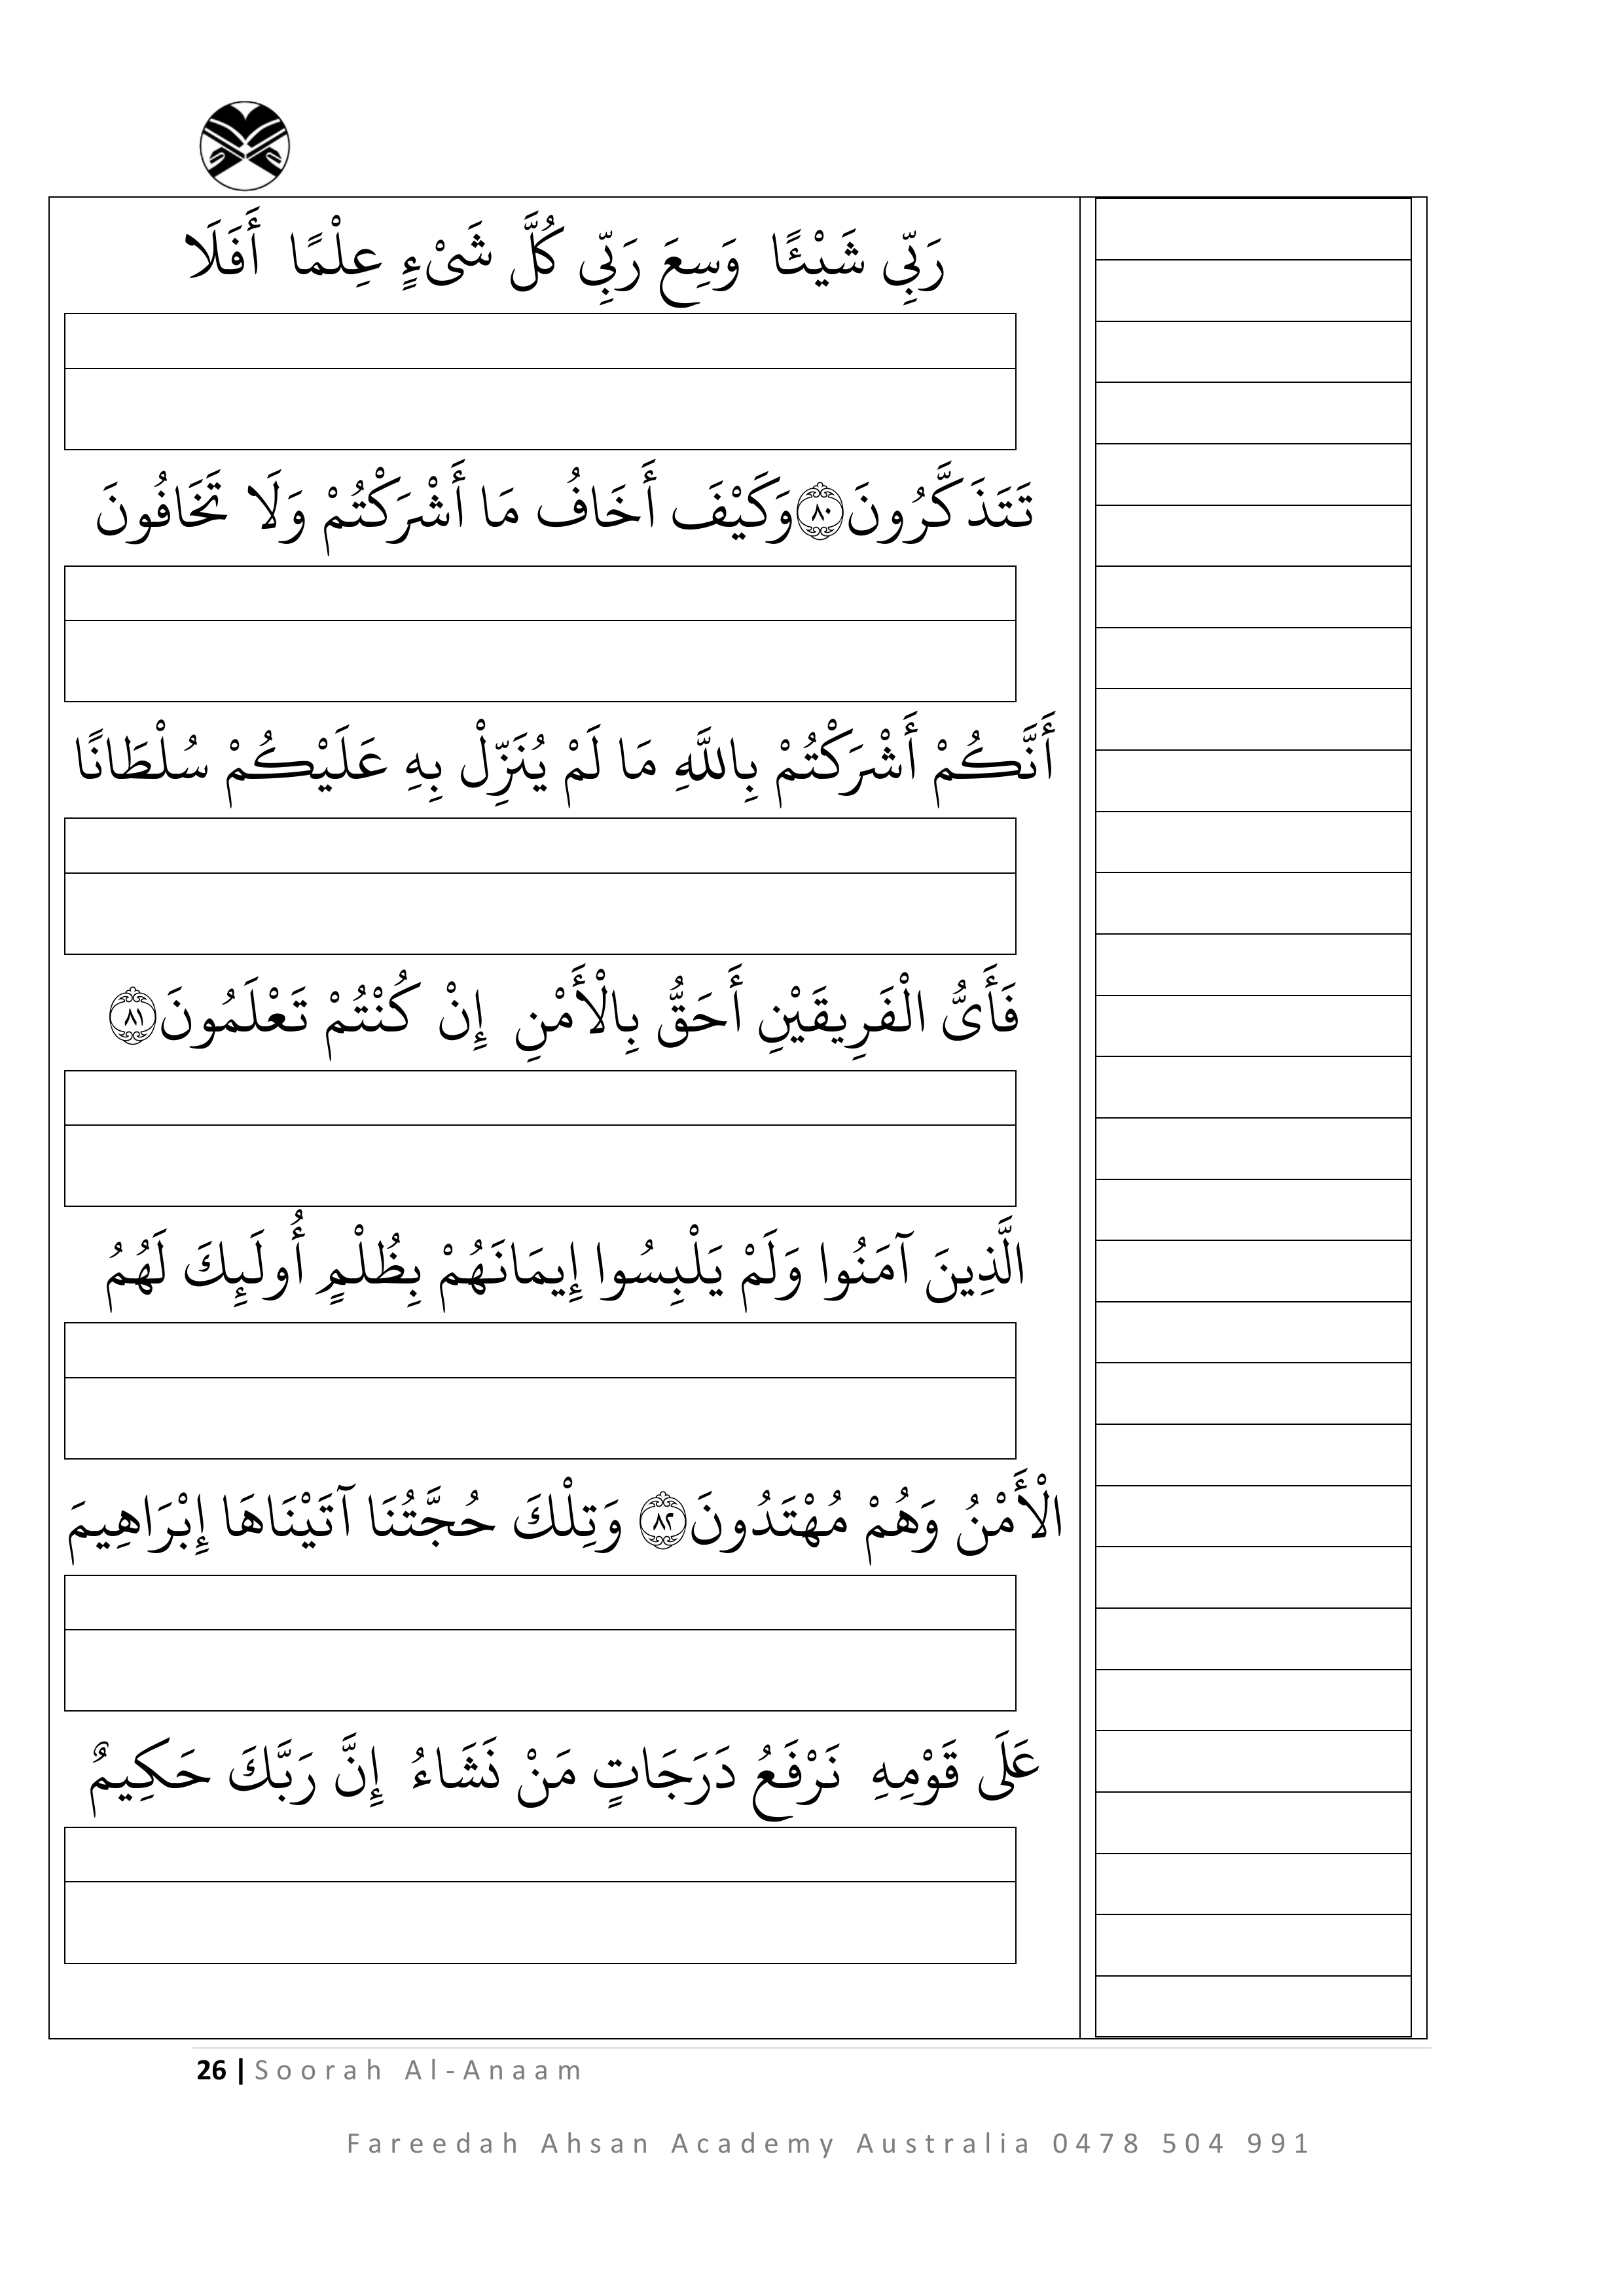 رَبِّى شَيْئًا وَسِعَ رَبِّى كُلَّ شَىْءٍ عِلْمًا أَفَلَا
تَتَذَكَّرُونَ۝٨٠وَكَيْفَ أَخَافُ مَا أَشْرَكْتُمْ وَلَا تَخَافُونَ
أَنَّكُمْ أَشْرَكْتُمْ بِاللَّهِ مَا لَمْ يُنَزِّلْ بِهِ عَلَيْكُمْ سُلْطَانًا
فَأَىُّ الْفَرِيقَيْنِ أَحَقُّ بِالْأَمْنِ إِنْ كُنْتُمْ تَعْلَمُونَ۝٨١
الَّذِينَ آمَنُوا وَلَمْ يَلْبِسُوا إِيمَانَهُمْ بِظُلْمٍ أُولَئِكَ لَهُمُ
الْأَمْنُ وَهُمْ مُهْتَدُونَ۝٨٢ وَتِلْكَ حُجَّتُنَا آتَيْنَاهَا إِبْرَاهِيمَ
عَلَى قَوْمِهِ نَرْفَعُ دَرَجَاتٍ مَنْ نَشَاءُ إِنَّ رَبَّكَ حَكِيمٌ
26 | Soorah Al-Anaam
Fareedah Ahsan Academy Australia 0478 504 991